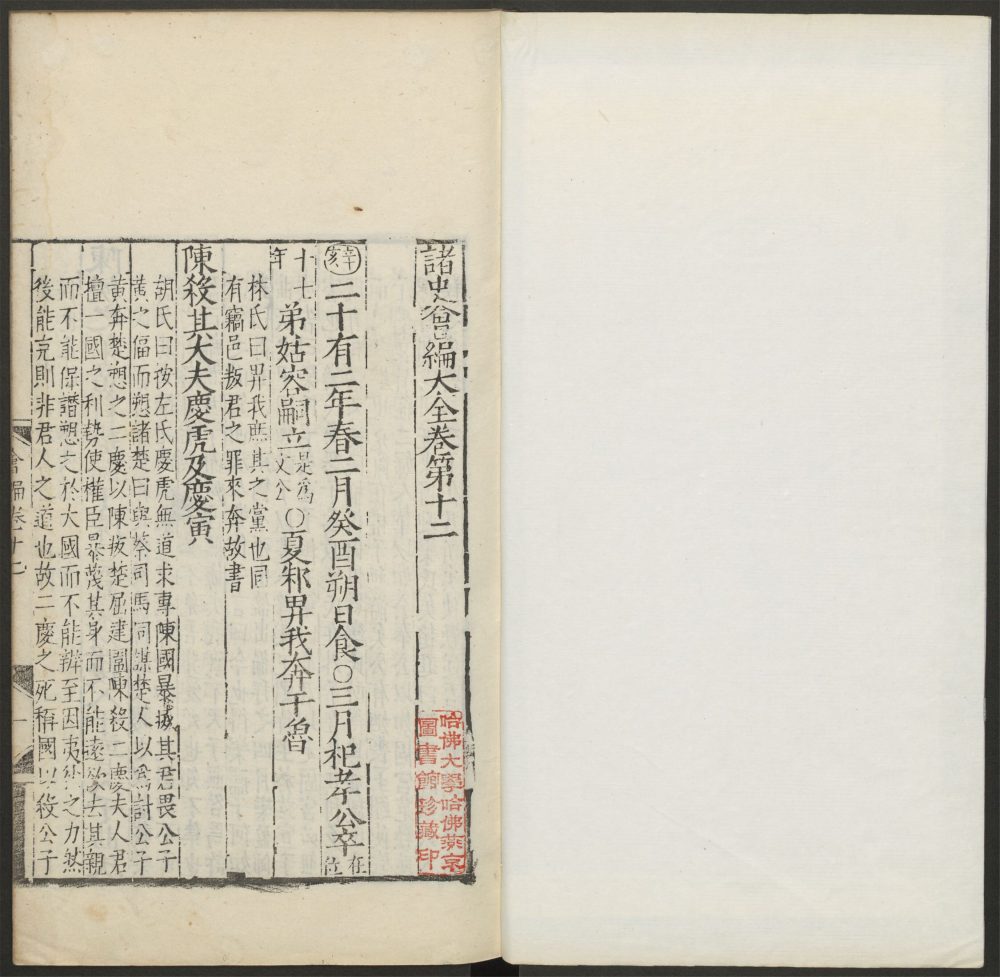 諸史會編大全卷第十二
哈佛大學哈佛燕京
圖書館珍藏印
辛亥二十有二年春二月癸酉朔日食○三月杞孝公卒在位
十七年弟姑容嗣立是爲文公○夏邾畀我奔于魯
林氏曰畀我庶其之黨也同
有竊邑叛君之罪來奔故書
陳殺其大夫慶虎及慶寅
胡氏曰按左氏慶虎無道求專陳國暴蔑其君畏公子
黃之偪而愬諸楚曰與蔡司馬同謀楚人以爲討公子
黃奔楚愬之二慶以陳叛楚屈建圍陳殺二慶夫人君
擅一國之利勢使權臣暴蔑其身而不能遠欲去其親
而不能保譖愬之於大國而不能辨至因夷狄之力然
後能克則非君人之道也故二慶之死稱國以殺公子
會編卷十二
一